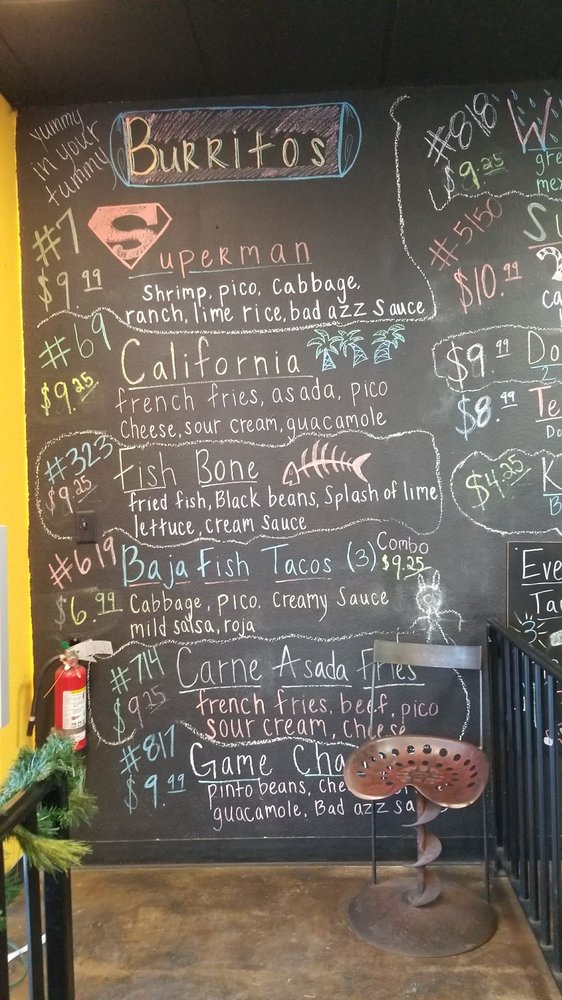 yummy
in your
tummy
Burritos
#7
$9.99
S
Superman
Shrimp, pico, Cabbage,
ranch, lime rice, bad azz sauce
#69
$9.25
California
french fries, asada, pico
Cheese, sour cream, guacamole
#323
$9.25
Fish Bone
fried fish, Black beans, Splash of lime
lettuce, cream sauce
#619
$6.99
Baja Fish Tacos (3) Combo
$9.25
Cabbage, pico, Creamy Sauce
mild salsa, roja
#714
$9.25
Carne Asada Fries
french fries, beef, pico
sour cream, cheese
#817
$9.99
Game Cha
pinto beans, Che
guacamole, Bad azz sa
#818
$9.25
W
gre
mex
#5150
$10.99
Su
ca
$9.99
Do
$8.99
Te
Do
$4.25
K
B
Eve
Ta
3